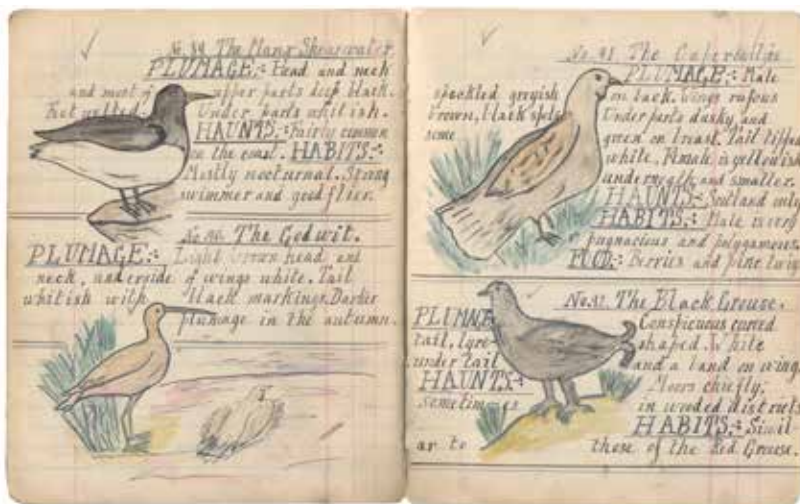 No. 89. The Manx Shearwater.
PLUMAGE:- Head and neck
and most of upper parts deep black.
Feet webbed. Under parts whitish.
HAUNTS:- Fairly common
on the coast. HABITS:-
Mostly nocturnal. Strong
swimmer and good flier.
No. 90. The Godwit.
PLUMAGE:- Light brown head and
neck, underside of wings white. Tail
whitish with black markings. Darker
plumage in the autumn.
No. 91. The Capercallie
PLUMAGE:- Male
speckled greyish on back. Wings rufous
brown, black spots Under parts dusky and
some green on breast. Tail tipped
white. Female is yellowish
underneath and smaller.
HAUNTS- Scotland only
HABITS:- Male is very
pugnacious and polygamous.
FOOD:- Berries and pine twigs
No. 92. The Black Grouse.
PLUMAGE Conspicuous curved
tail, lyre shaped. White
under tail and a band on wing
HAUNTS- Moors chiefly,
sometimes in wooded districts
HABITS:- Simil-
ar to those of the Red Grouse.